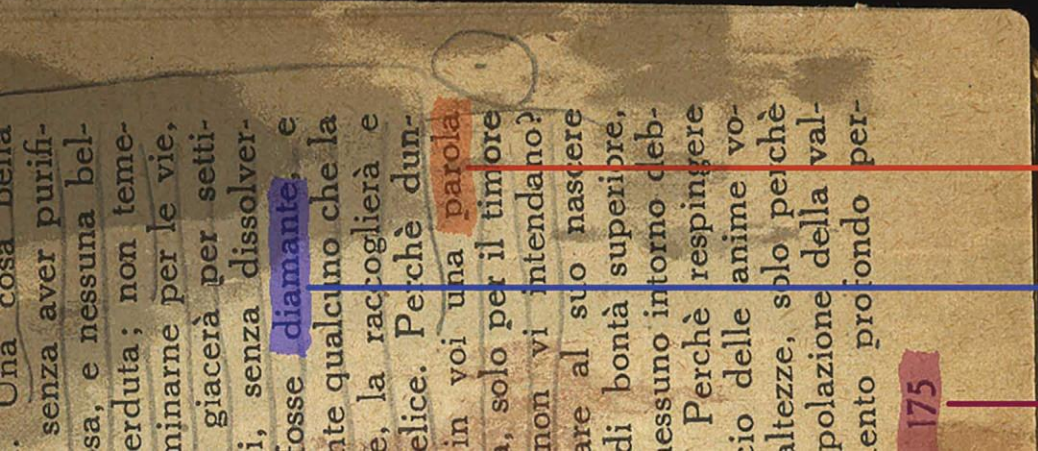 Una cosa bella
senza aver purifi-
e nessuna bel-
non teme-
per le vie,
giacerà per setti-
senza dissolver-
diamante, e
qualcuno che la
la raccoglierà e
Perchè dun-
in voi una parola
solo per il timore
non vi intendano?
al suo nascere
di bontà superiore,
intorno deb-
Perchè respingere
delle anime vo-
solo perchè
della val-
profondo per-
175